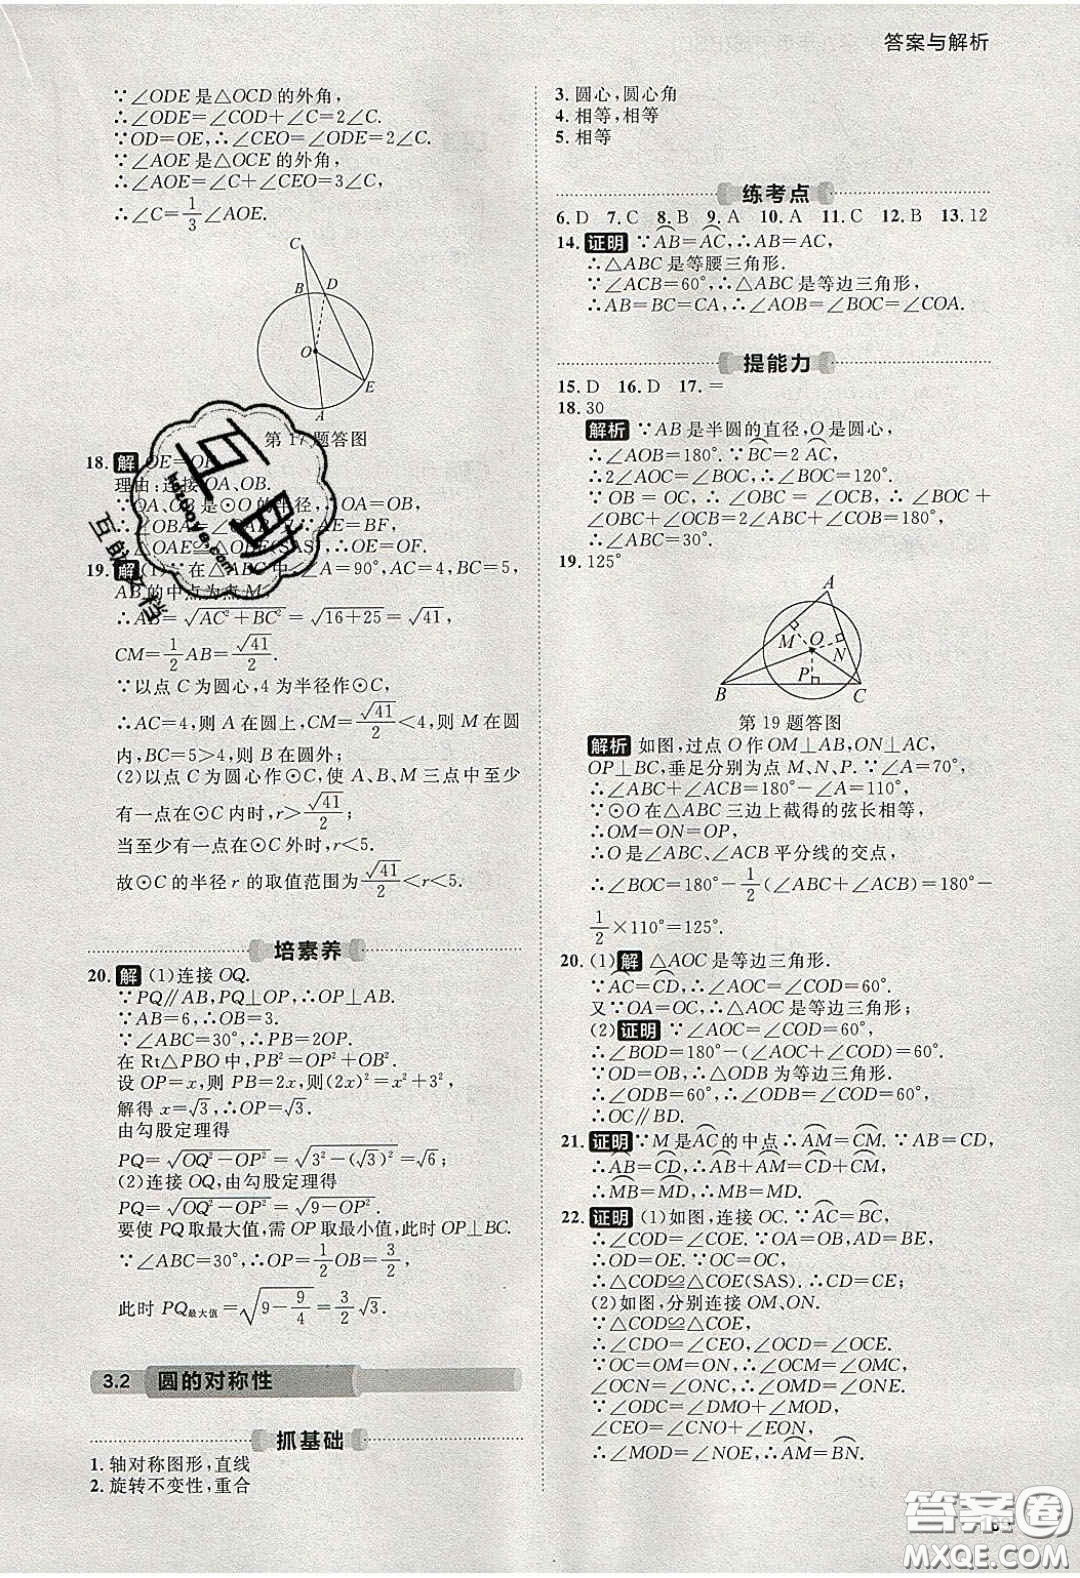 答案与解析
∵∠ODE是△OCD的外角,
∴∠ODE=∠COD+∠C=2∠C.
∵OD=OE,∴∠CEO=∠ODE=2∠C.
∵∠AOE是△OCE的外角,
∴∠AOE=∠C+∠CEO=3∠C.
∴∠C=1/3∠AOE.
C
B
D
O
E
A
第17题答图
18. 解 OE=OF
理由:连接OA、OB.
∵OA、OB是⊙O的半径,∴OA=OB.
∴∠OBA=∠OAB.又∵AE=BF,
∴△OAE≌△OBF(SAS).∴OE=OF.
19. 解 (1)∵在△ABC中,∠A=90°,AC=4,BC=5,
AB的中点为点M,
∴AB=√(AC²+BC²)=√(16+25)=√41,
CM=1/2AB=√41/2.
∵以点C为圆心,4为半径作⊙C,
∴AC=4,则A在圆上,CM=√41/2<4,则M在圆
内,BC=5>4,则B在圆外;
(2)以点C为圆心作⊙C,使A、B、M三点中至少
有一点在⊙C内时,r>√41/2;
当至少有一点在⊙C外时,r<5.
故⊙C的半径r的取值范围为√41/2<r<5.
培素养
20. 解 (1)连接OQ.
∵PQ∥AB,PQ⊥OP,∴OP⊥AB.
∵AB=6,∴OB=3.
∵∠ABC=30°,∴PB=2OP.
在Rt△PBO中,PB²=OP²+OB².
设OP=x,则PB=2x,则(2x)²=x²+3²,
解得x=√3,∴OP=√3.
由勾股定理得
PQ=√(OQ²−OP²)=√(3²−(√3)²)=√6;
(2)连接OQ,由勾股定理得
PQ=√(OQ²−OP²)=√(9−OP²).
要使PQ取最大值,需OP取最小值,此时OP⊥BC.
∵∠ABC=30°,∴OP=1/2OB=3/2,
此时PQ最大值=√(9−9/4)=3/2√3.
3.2 圆的对称性
抓基础
1. 轴对称图形,直线
2. 旋转不变性,重合
3. 圆心,圆心角
4. 相等,相等
5. 相等
练考点
6. D 7. C 8. B 9. A 10. A 11. C 12. B 13. 12
14. 证明 ∵⌒AB=⌒AC,∴AB=AC,
∴△ABC是等腰三角形.
∵∠ACB=60°,∴△ABC是等边三角形,
∴AB=BC=CA,∴∠AOB=∠BOC=∠COA.
提能力
15. D 16. D 17. =
18. 30
解析 ∵AB是半圆的直径,O是圆心,
∴∠AOB=180°.∵⌒BC=2⌒AC,
∴2∠AOC=∠BOC,∴∠BOC=120°.
∵OB=OC,∴∠OBC=∠OCB,∠BOC+
∠OBC+∠OCB=2∠OBC+∠BOC=180°,
∴∠ABC=30°.
19. 125°
A
M
O
N
P
B
C
第19题答图
解析 如图,过点O作OM⊥AB,ON⊥AC,
OP⊥BC,垂足分别为点M、N、P.∵∠A=70°,
∴∠ABC+∠ACB=180°−∠A=110°,
∵⊙O在△ABC三边上截得的弦长相等,
∴OM=ON=OP,
∴O是∠ABC、∠ACB平分线的交点,
∴∠BOC=180°−1/2(∠ABC+∠ACB)=180°−
1/2×110°=125°.
20. (1) 解 △AOC是等边三角形.
∵⌒AC=⌒CD,∴∠AOC=∠COD=60°.
又∵OA=OC,∴△AOC是等边三角形;
(2) 证明 ∵∠AOC=∠COD=60°,
∴∠BOD=180°−(∠AOC+∠COD)=60°.
∵OD=OB,∴△ODB为等边三角形.
∴∠ODB=60°,∴∠ODB=∠COD=60°,
∴OC∥BD.
21. 证明 ∵M是⌒AC的中点∴⌒AM=⌒CM.∵AB=CD,
∴⌒AB=⌒CD,∴⌒AB+⌒AM=⌒CD+⌒CM,
∴⌒MB=⌒MD,∴MB=MD.
22. 证明 (1)如图,连接OC.∵⌒AC=⌒BC,
∴∠COD=∠COE.∵OA=OB,AD=BE,
∴OD=OE.∵OC=OC,
∴△COD≌△COE(SAS).∴CD=CE;
(2)如图,分别连接OM、ON.
∵△COD≌△COE,
∴∠CDO=∠CEO,∠OCD=∠OCE.
∵OC=OM=ON,∴∠OCM=∠OMC,
∠OCN=∠ONC,∴∠OMD=∠ONE.
∵∠ODC=∠DMO+∠MOD,
∠CEO=∠CNO+∠EON,
∴∠MOD=∠NOE,∴⌒AM=⌒BN.
互助
huzuoye.com
互助文档
答案圈
MXQE.COM